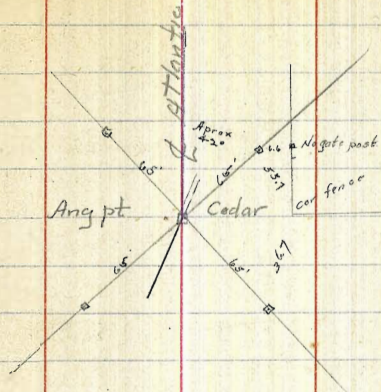 ℄ Atlantic
Aprox
42°
65'
65'
6.6
No gate post
53.7
cor fence
Ang pt.
Cedar
65'
65'
36.7